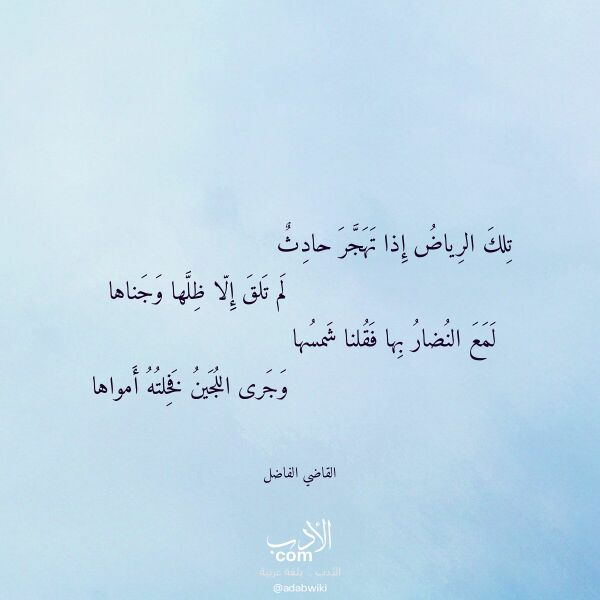 تِلكَ الرِياضُ إِذا تَهَجَّرَ حادِثٌ
لَم تَلقَ إِلّا ظِلَّها وَجَناها
لَمَعَ النُضارُ بِها فَقُلنا شَمسُها
وَجَرى اللُجَينُ فَخِلتُهُ أَمواها
القاضي الفاضل
الأدب
com
الأدب .. بلغة عربية
@adabwiki